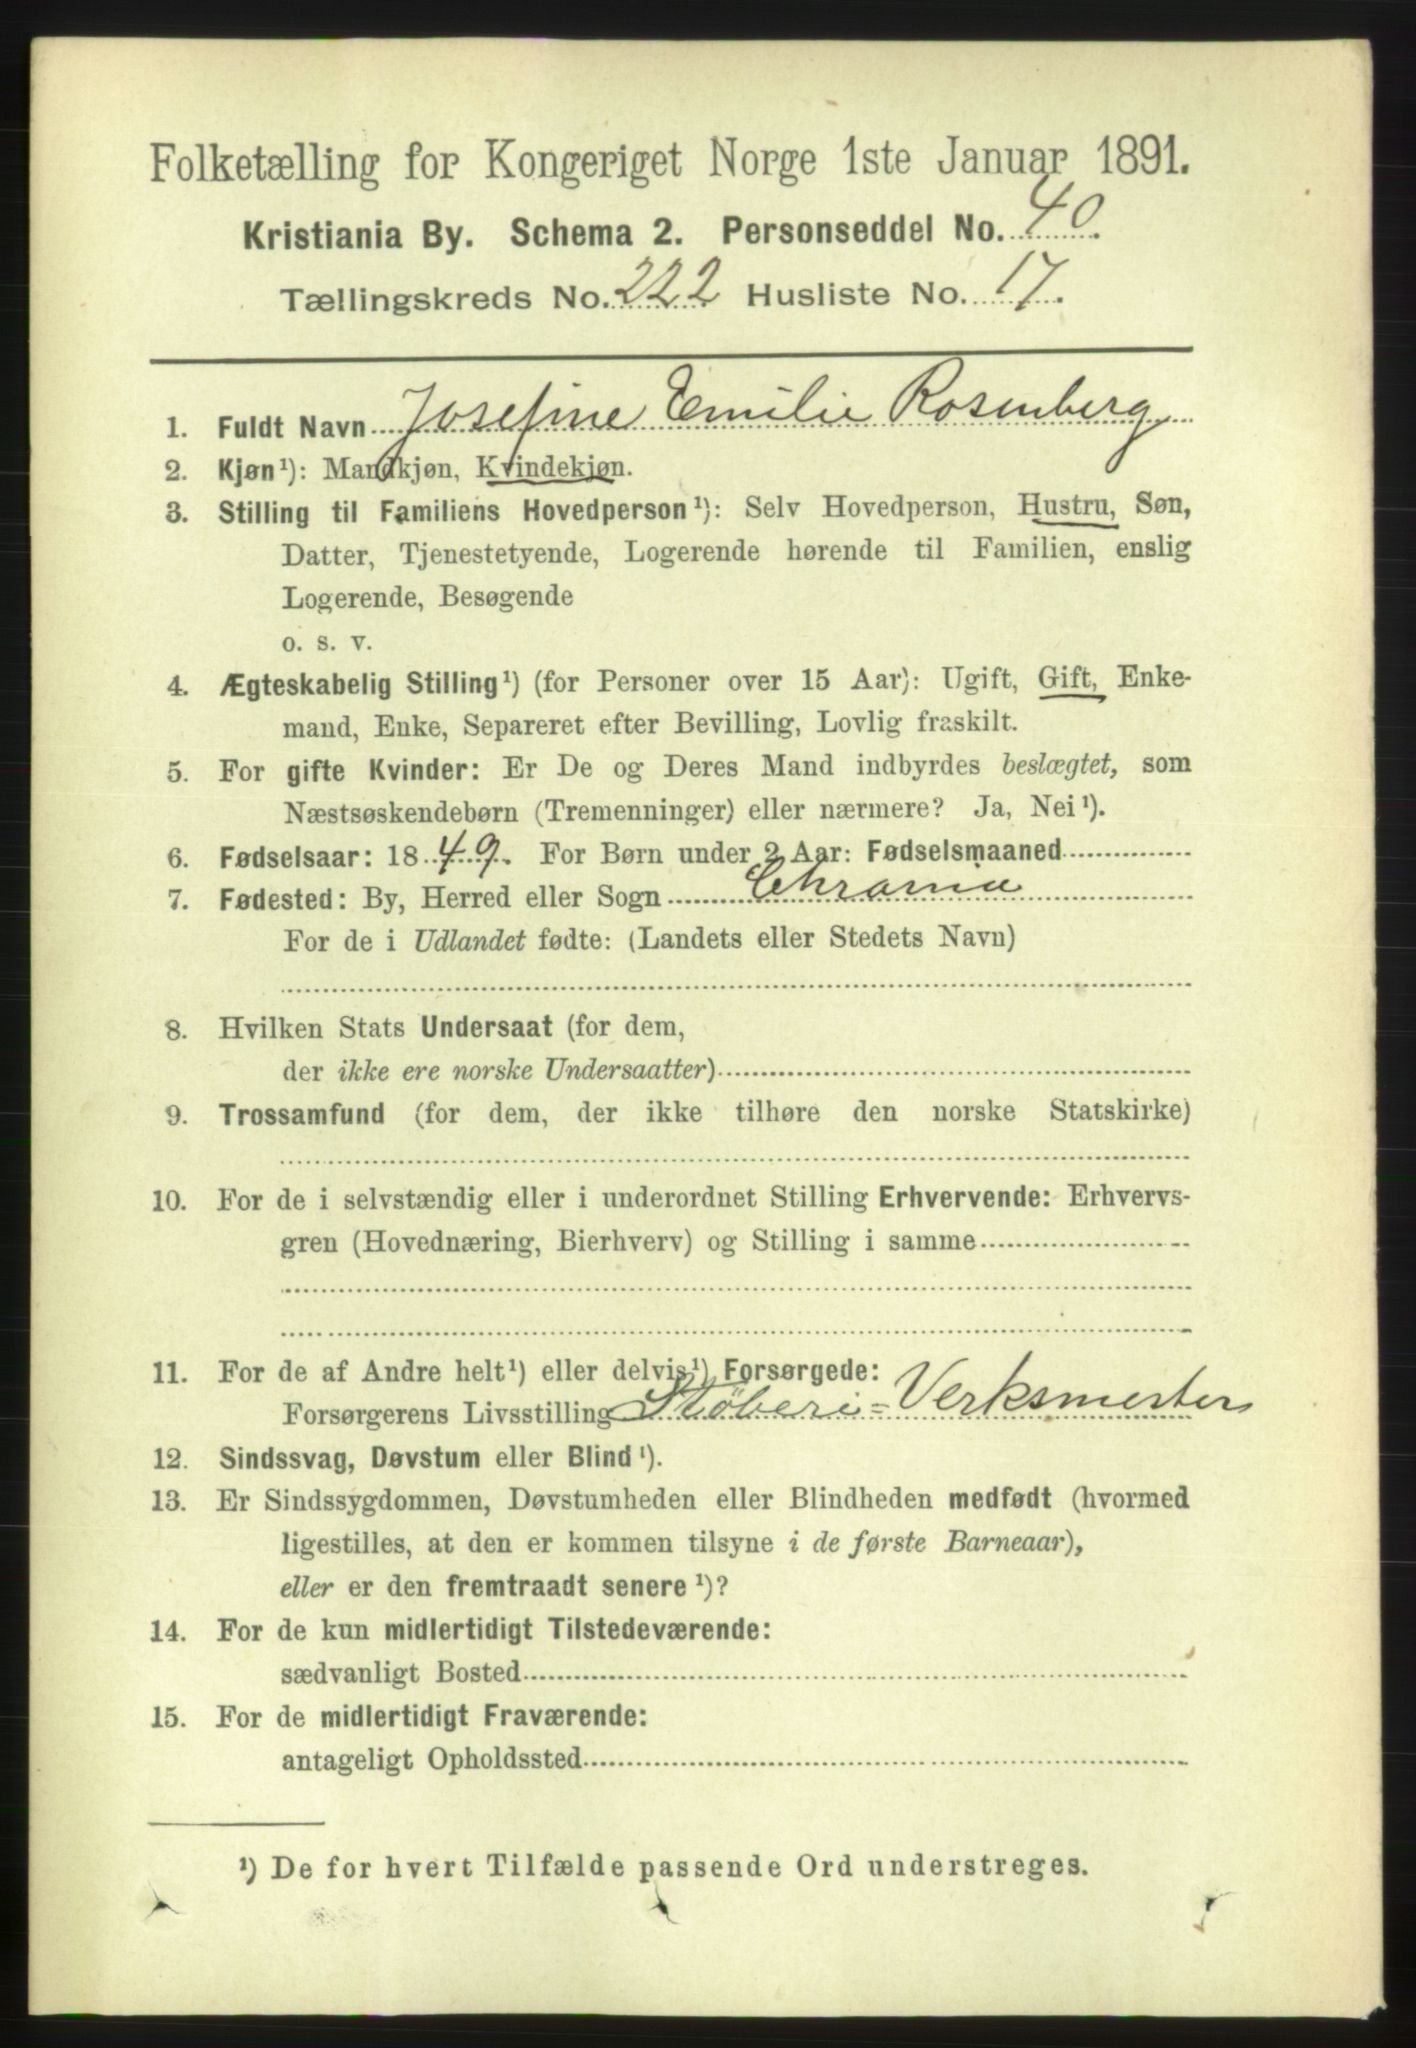 Folketælling for Kongeriget Norge 1ste Januar 1891.
Kristiania By. Schema 2. Personseddel No. 40.
Tællingskreds No. 222 Husliste No. 17.
1. Fuldt Navn Josefine Emilie Rosenberg
2. Kjøn¹): Mandkjøn, Kvindekjøn.
3. Stilling til Familiens Hovedperson¹): Selv Hovedperson, Hustru, Søn,
Datter, Tjenestetyende, Logerende hørende til Familien, enslig
Logerende, Besøgende
o. s. v.
4. Ægteskabelig Stilling¹) (for Personer over 15 Aar): Ugift, Gift, Enke-
mand, Enke, Separeret efter Bevilling, Lovlig fraskilt.
5. For gifte Kvinder: Er De og Deres Mand indbyrdes beslægtet, som
Næstsøskendebørn (Tremenninger) eller nærmere? Ja, Nei¹).
6. Fødselsaar: 1849. For Børn under 2 Aar: Fødselsmaaned
7. Fødested: By, Herred eller Sogn Chrania
For de i Udlandet fødte: (Landets eller Stedets Navn)
8. Hvilken Stats Undersaat (for dem,
der ikke ere norske Undersaatter)
9. Trossamfund (for dem, der ikke tilhøre den norske Statskirke)
10. For de i selvstændig eller i underordnet Stilling Erhvervende: Erhvervs-
gren (Hovednæring, Bierhverv) og Stilling i samme
11. For de af Andre helt¹) eller delvis¹) Forsørgede:
Forsørgerens Livsstilling Støberi=Verksmester
12. Sindssvag, Døvstum eller Blind¹).
13. Er Sindssygdommen, Døvstumheden eller Blindheden medfødt (hvormed
ligestilles, at den er kommen tilsyne i de første Barneaar),
eller er den fremtraadt senere¹)?
14. For de kun midlertidigt Tilstedeværende:
sædvanligt Bosted
15. For de midlertidigt Fraværende:
antageligt Opholdssted
¹) De for hvert Tilfælde passende Ord understreges.